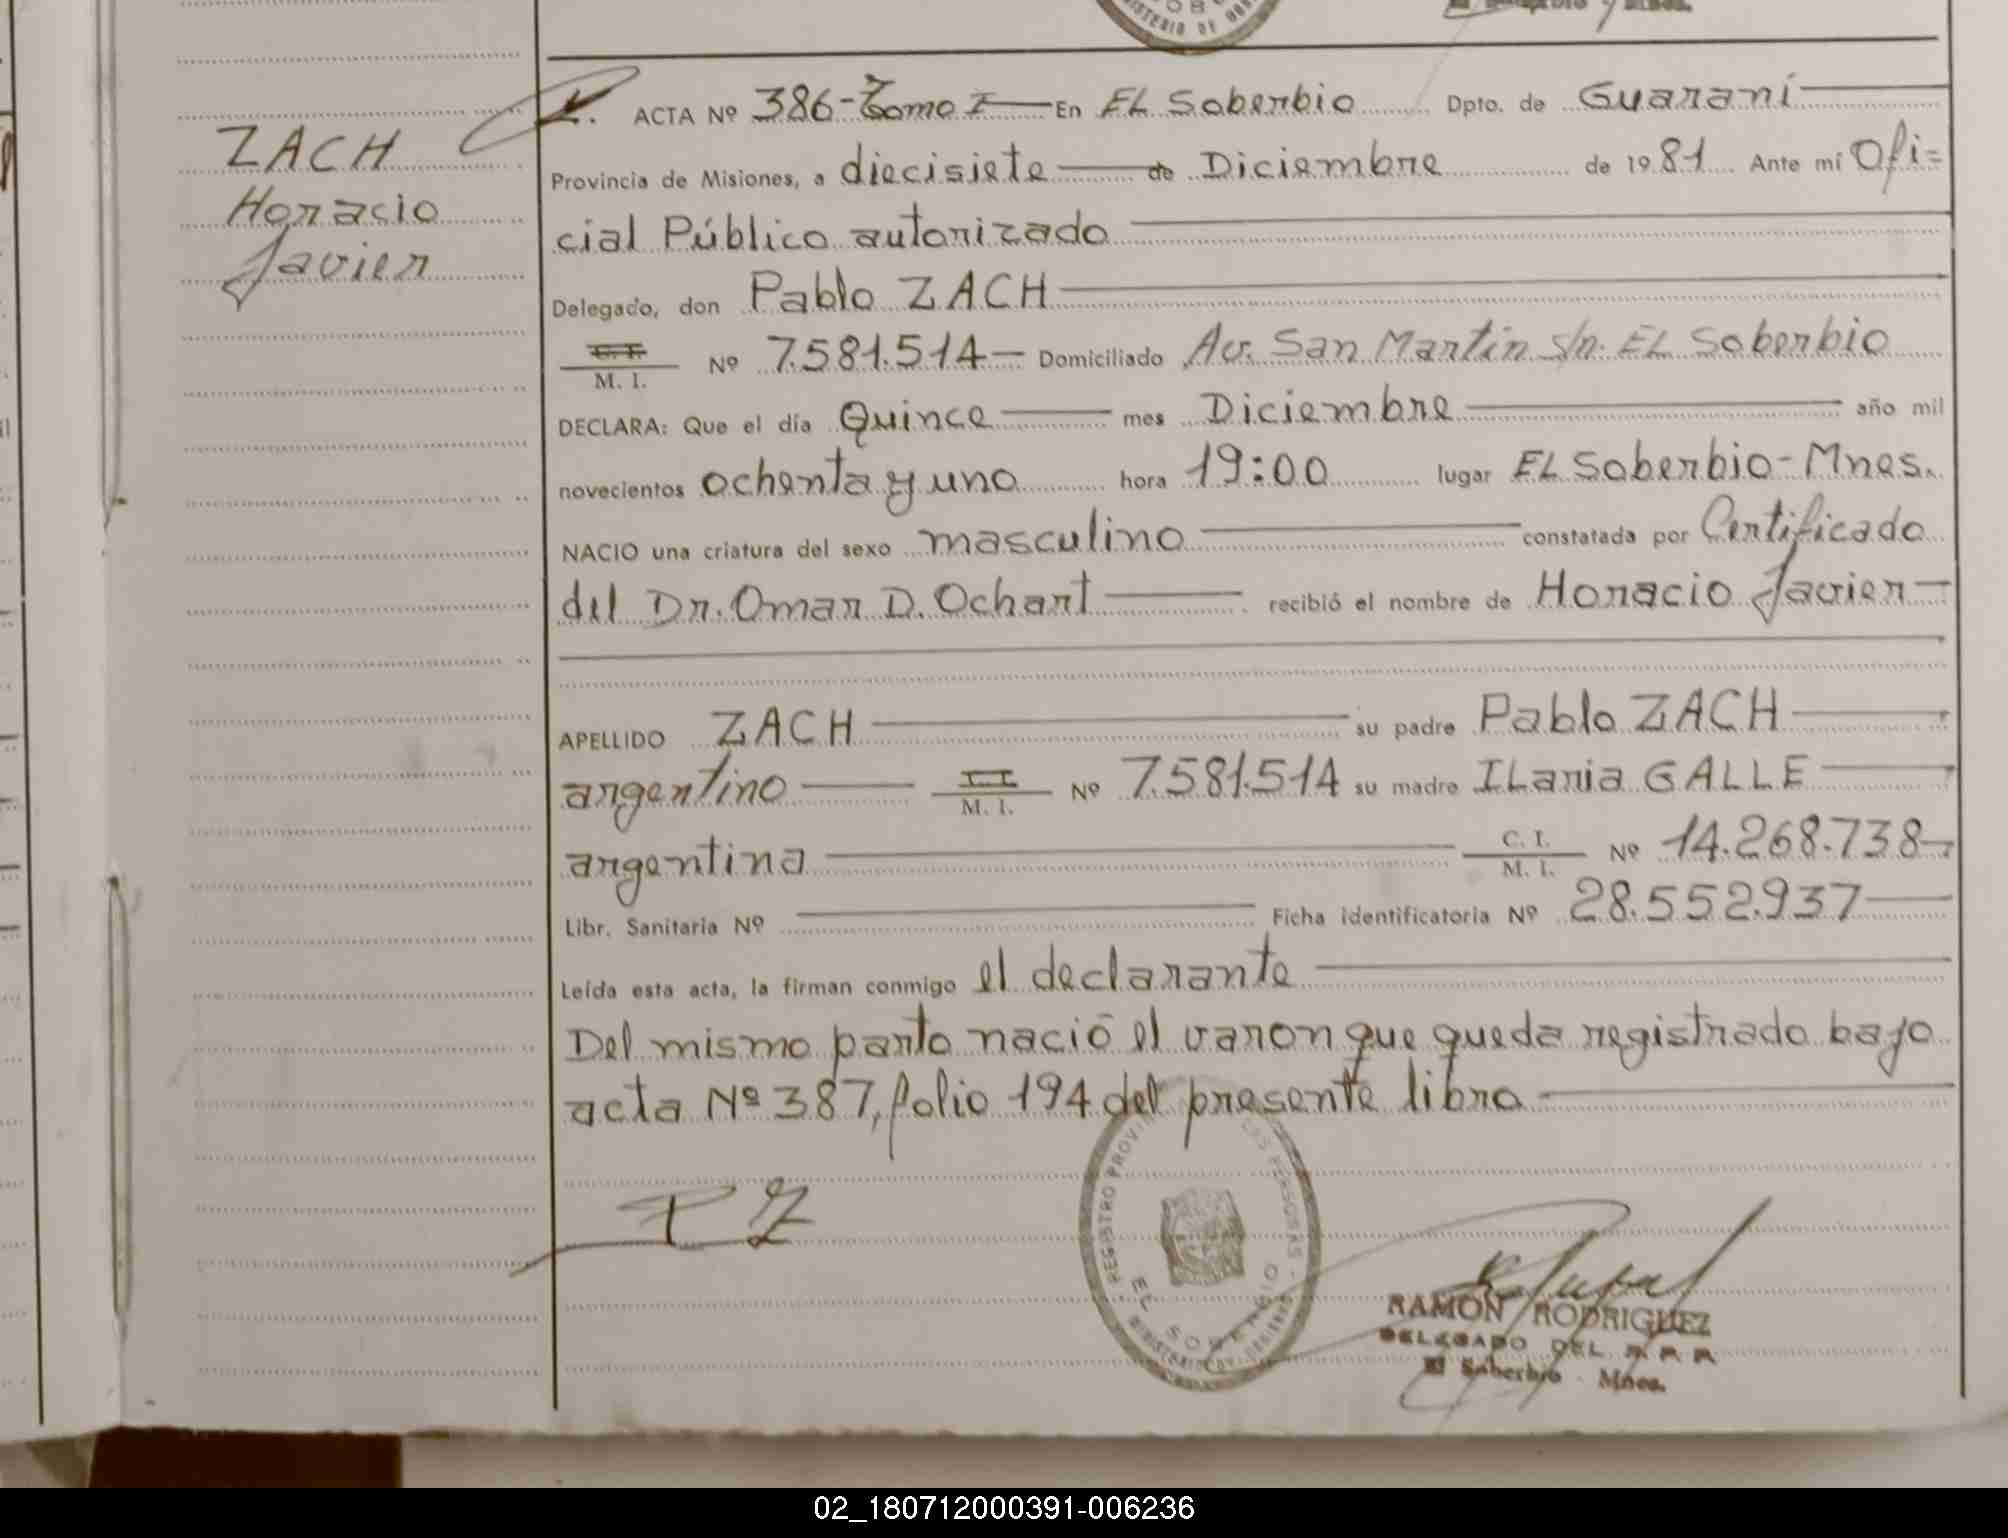 ZACH
Horacio
Javier
ACTA Nº 386-Tomo I En EL Soberbio Dpto. de Guaraní
Provincia de Misiones, a diecisiete de Diciembre de 1981 Ante mí Ofi=
cial Público autorizado
Delegado, don Pablo ZACH
C. I.
M. I. Nº 7.581.514 Domiciliado Av. San Martín s/n. EL Soberbio
DECLARA: Que el día Quince mes Diciembre año mil
novecientos ochenta y uno hora 19:00 lugar EL Soberbio-Mnes.
NACIO una criatura del sexo masculino constatada por Certificado
del Dr. Omar D. Ochart recibió el nombre de Horacio Javier
APELLIDO ZACH su padre Pablo ZACH
argentino M. I. Nº 7.581.514 su madre ILaria GALLE
argentina C. I.
M. I. Nº 14.268.738
Libr. Sanitaria Nº Ficha identificatoria Nº 28.552.937
Leída esta acta, la firman conmigo el declarante
Del mismo parto nació el varon que queda registrado bajo
acta Nº 387, folio 194 del presente libro
PZ
REGISTRO PROVINCIAL DE LAS PERSONAS
EL SOBERBIO
MINISTERIO DE GOBIERNO
RAMON RODRIGUEZ
DELEGADO DEL R P P
El Soberbio - Mnes.
02_180712000391-006236